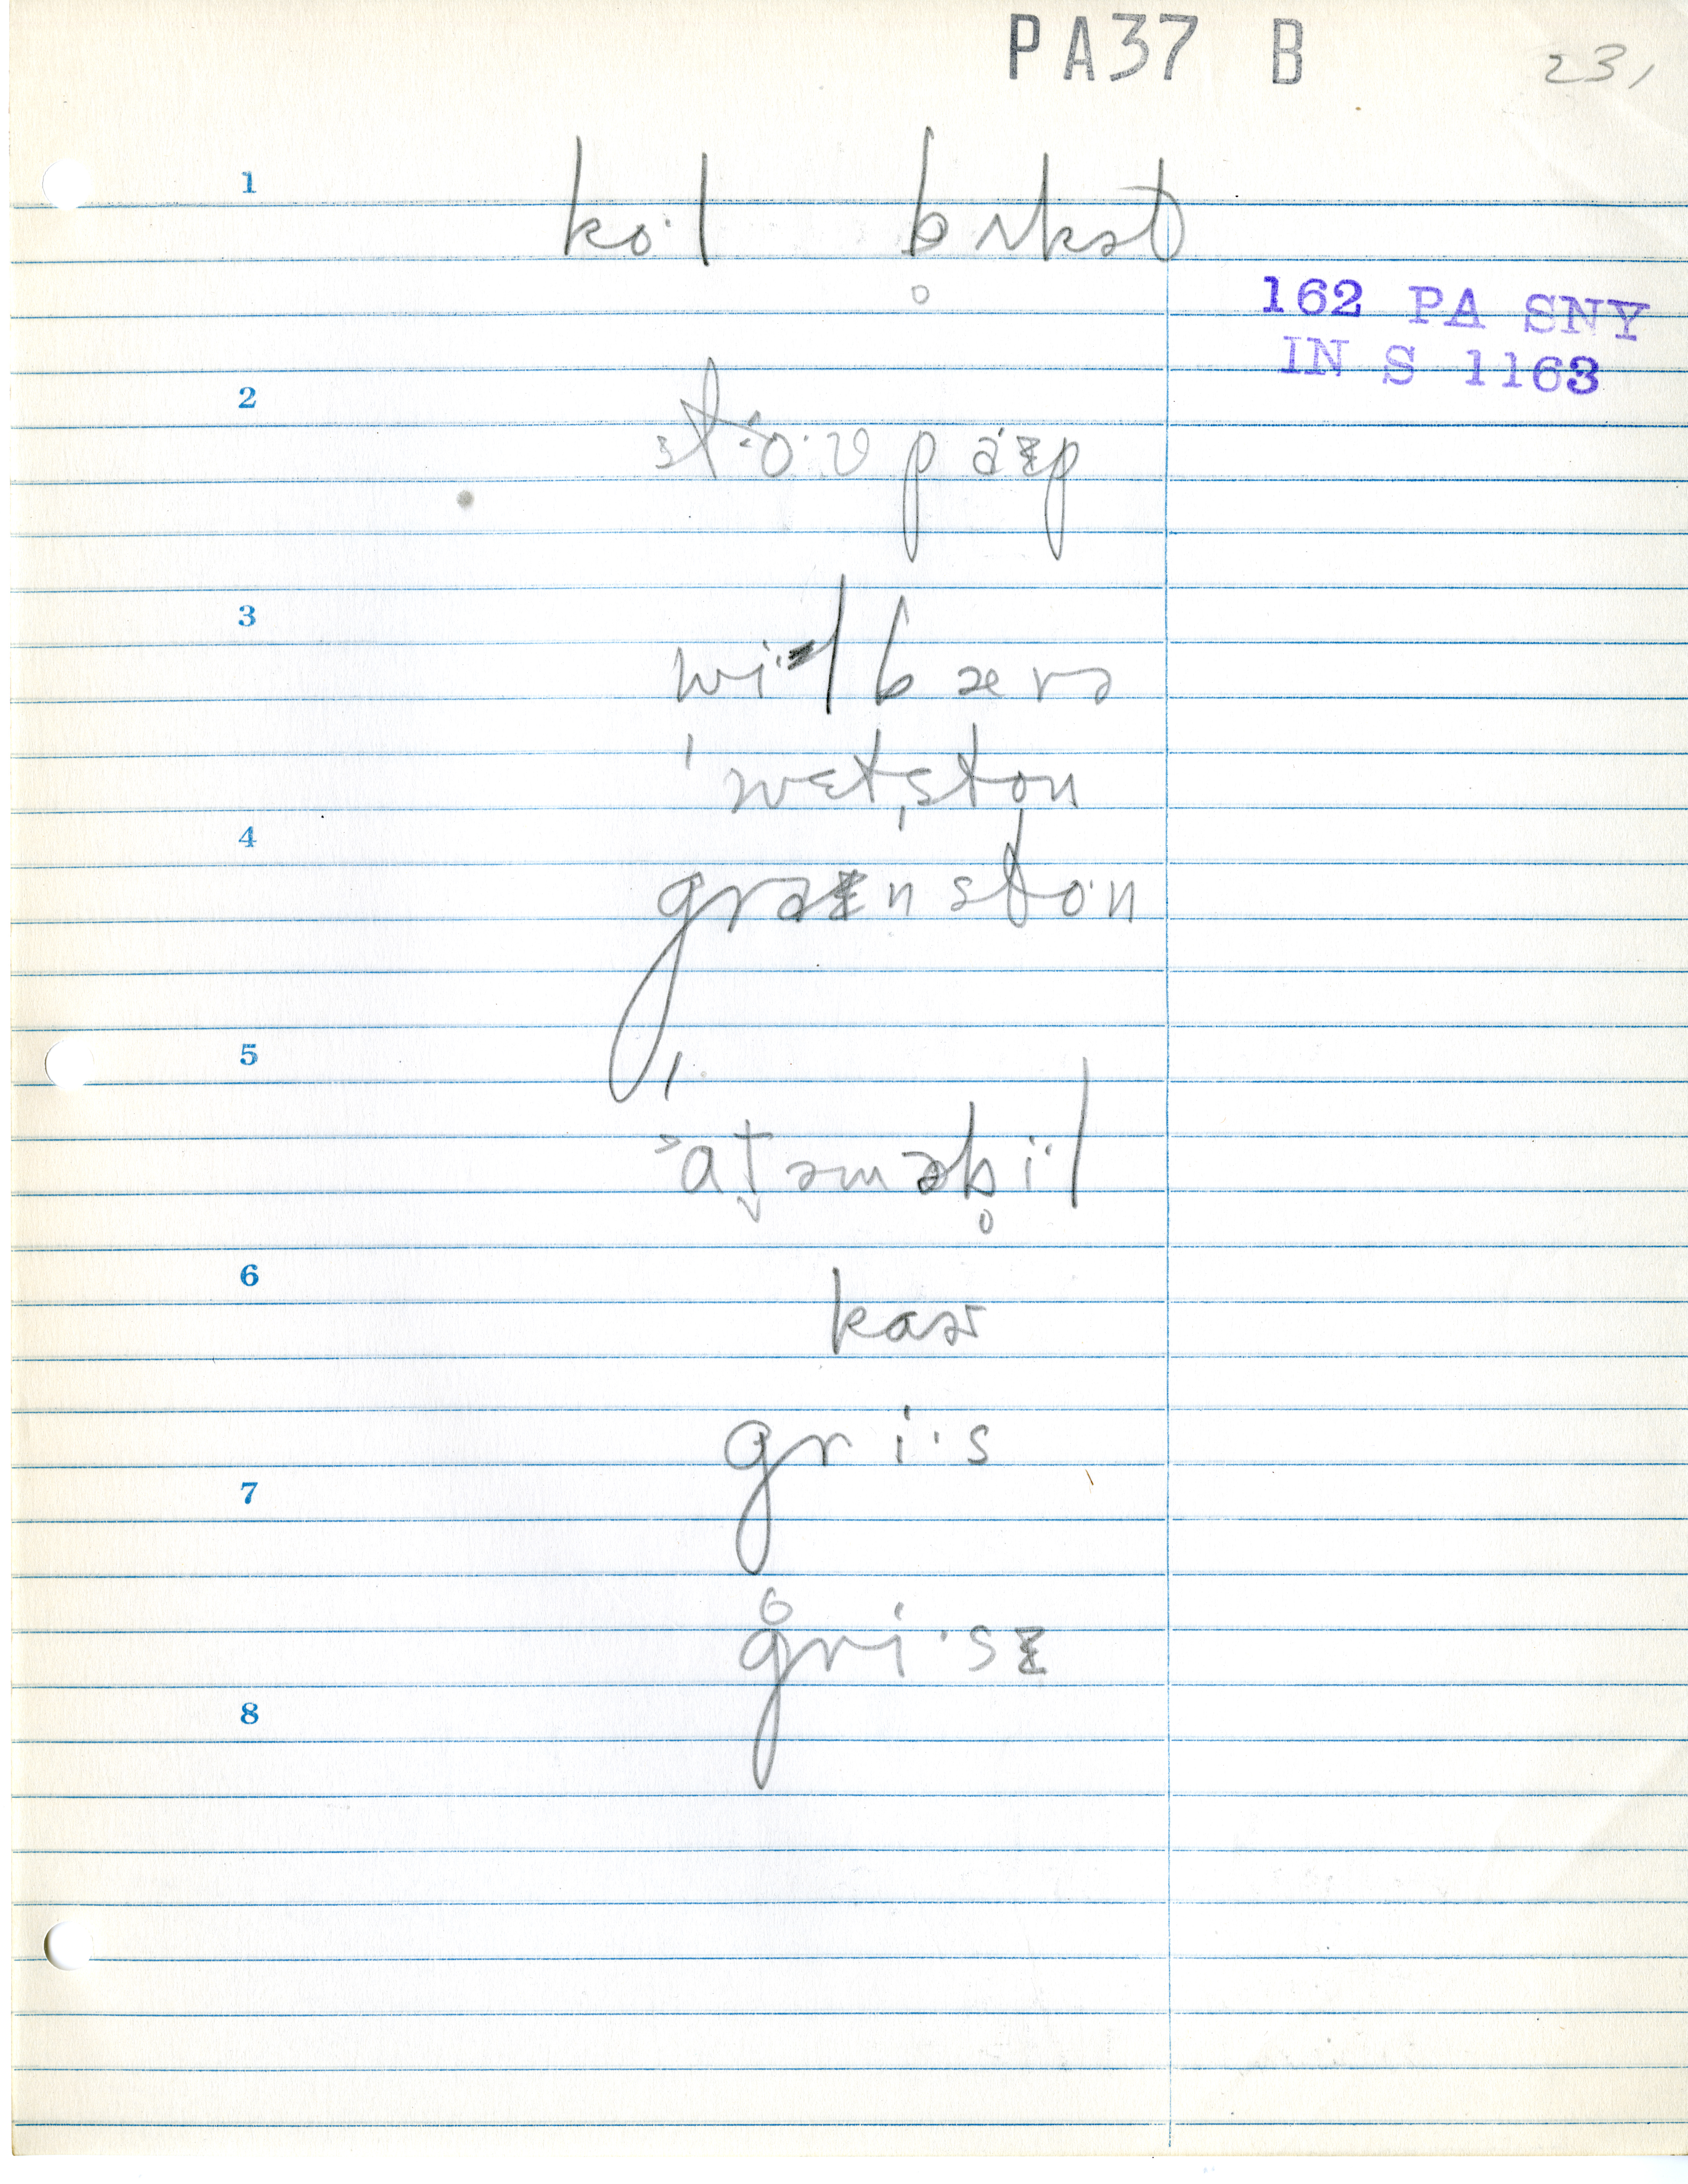 PA37 B 23,
1 ko·l b̥ʌkət
162 PA SNY
IN S 1163
2 sto·v paɪp
3 wi·lbærə
ˈwɛtˌston
4 graɪnsto·n
5
ˈɔt̬əməb̥i·l
6 kaɚ
gri·s
7
g̊ri·sɪ
8